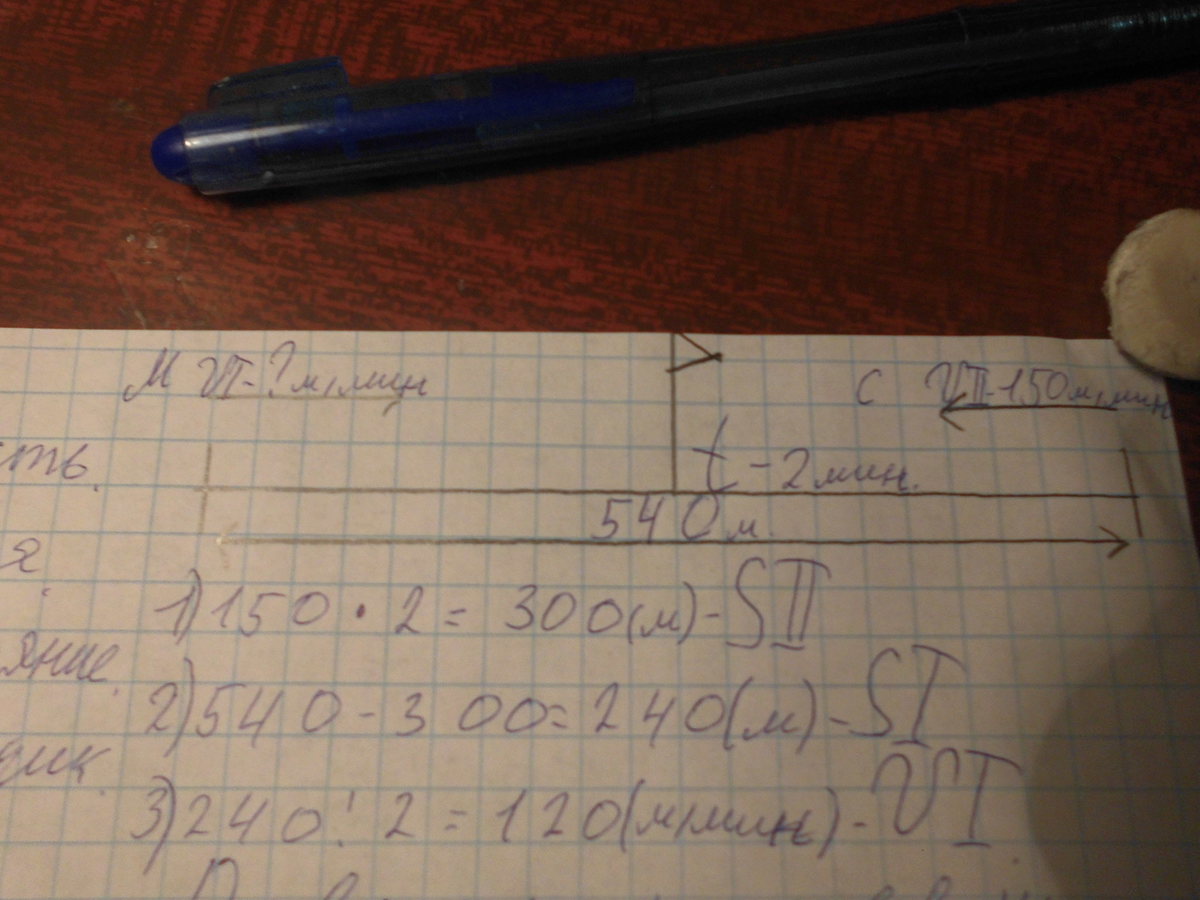 М VI-? м/мин
С VII-150м/мин
t - 2 мин.
540м.
1) 150 · 2 = 300(м)-SII
2) 540 - 300 = 240(м)-SI
3) 240 : 2 = 120(м/мин)-VI.